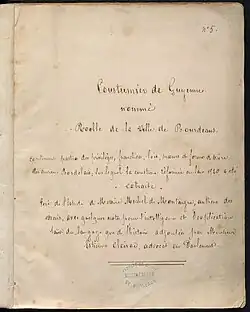 nº 5.
Coustumier de Guyenne
nommé
Roolle de la Ville de Bourdeaus.
contenant partie des privilèges, franchises, lois, mœurs & formes de vivre
des anciens Bordelais, sur lequel la coustume réformée en l'an 1520 a été
extraite.
Tiré de l'étude de Messire Michel de Montaigne, autheur des
essais, avec quelques notes pour l'intelligence et l'explication
du langage que de l'histoire adjoutées par
Estienne Cleirac, advocat en Parlement.